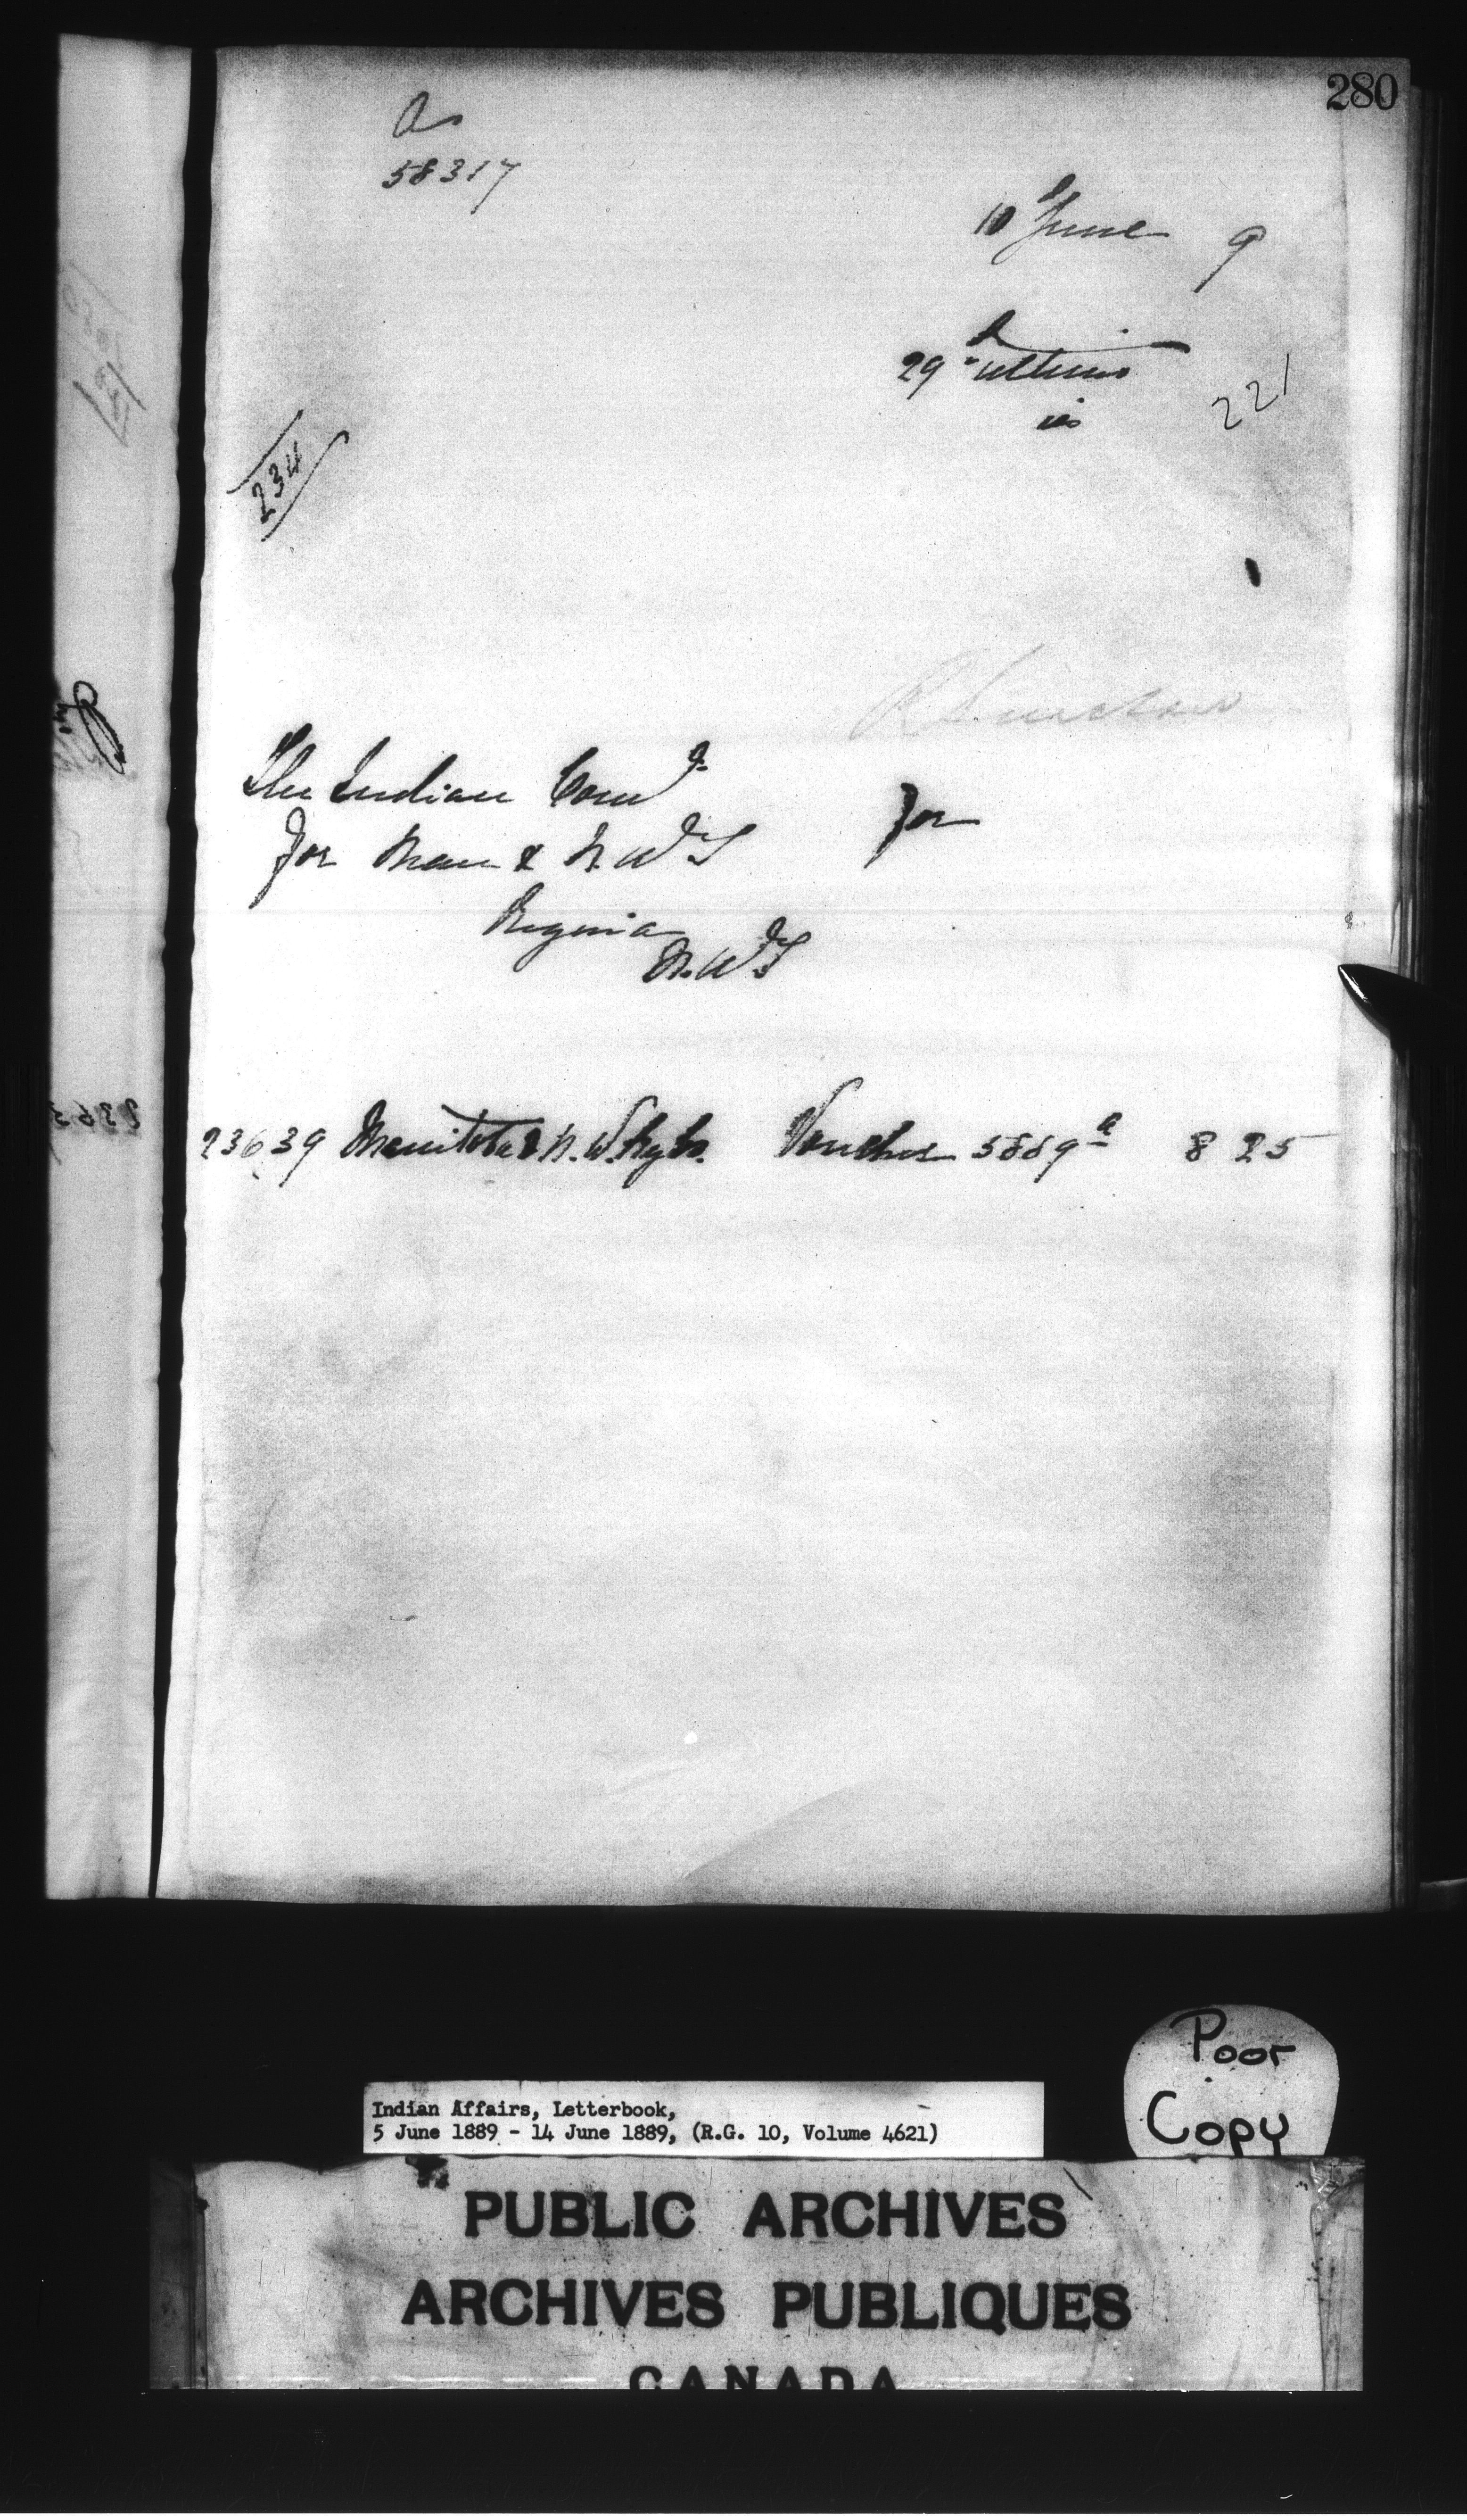 280
58317
10 June 9
29th ultimo
is
221
234
R Sinclair
The Indian Comr
for Man & N. W. T
for
Regina
N. W. T
23639 Manitoba & N. W. Ry Co. Voucher 5889a 8 25
Poor
Copy
Indian Affairs, Letterbook,
5 June 1889 - 14 June 1889, (R.G. 10, Volume 4621)
PUBLIC ARCHIVES
ARCHIVES PUBLIQUES
CANADA